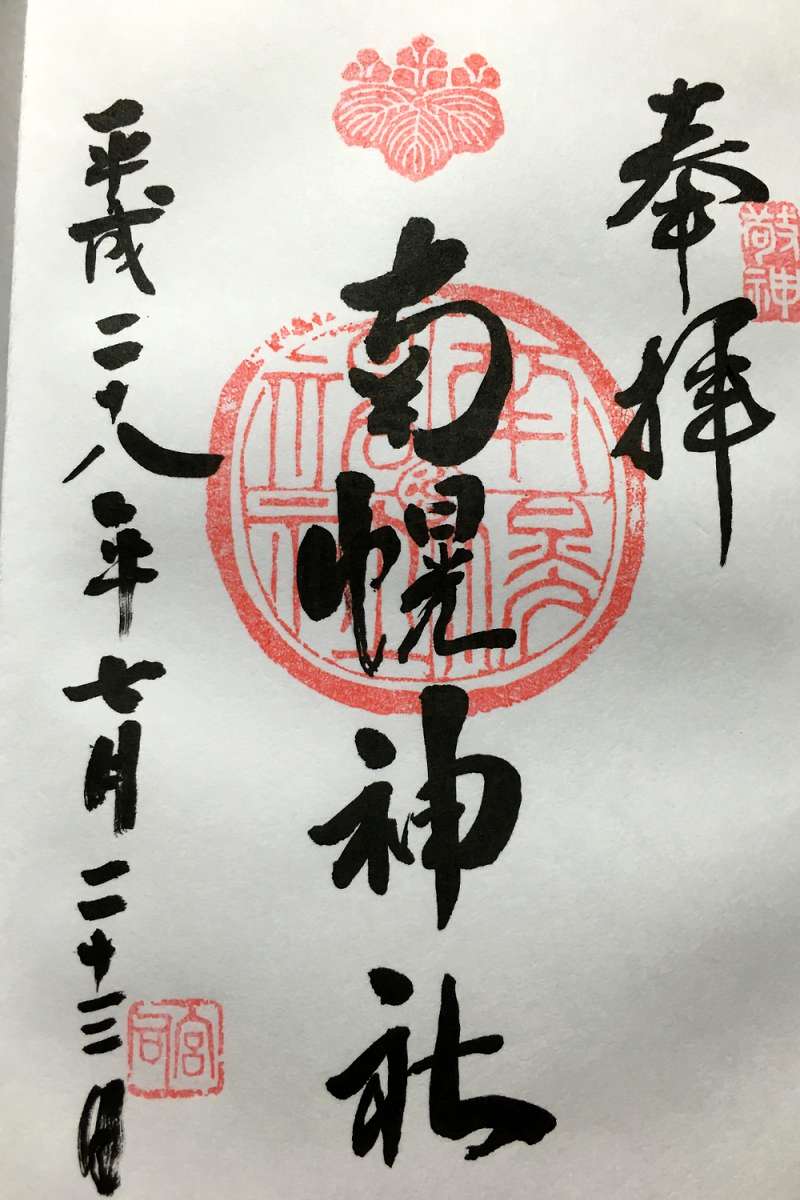 奉拝
敬神
南幌神社
平成二十八年七月二十三日
宮司